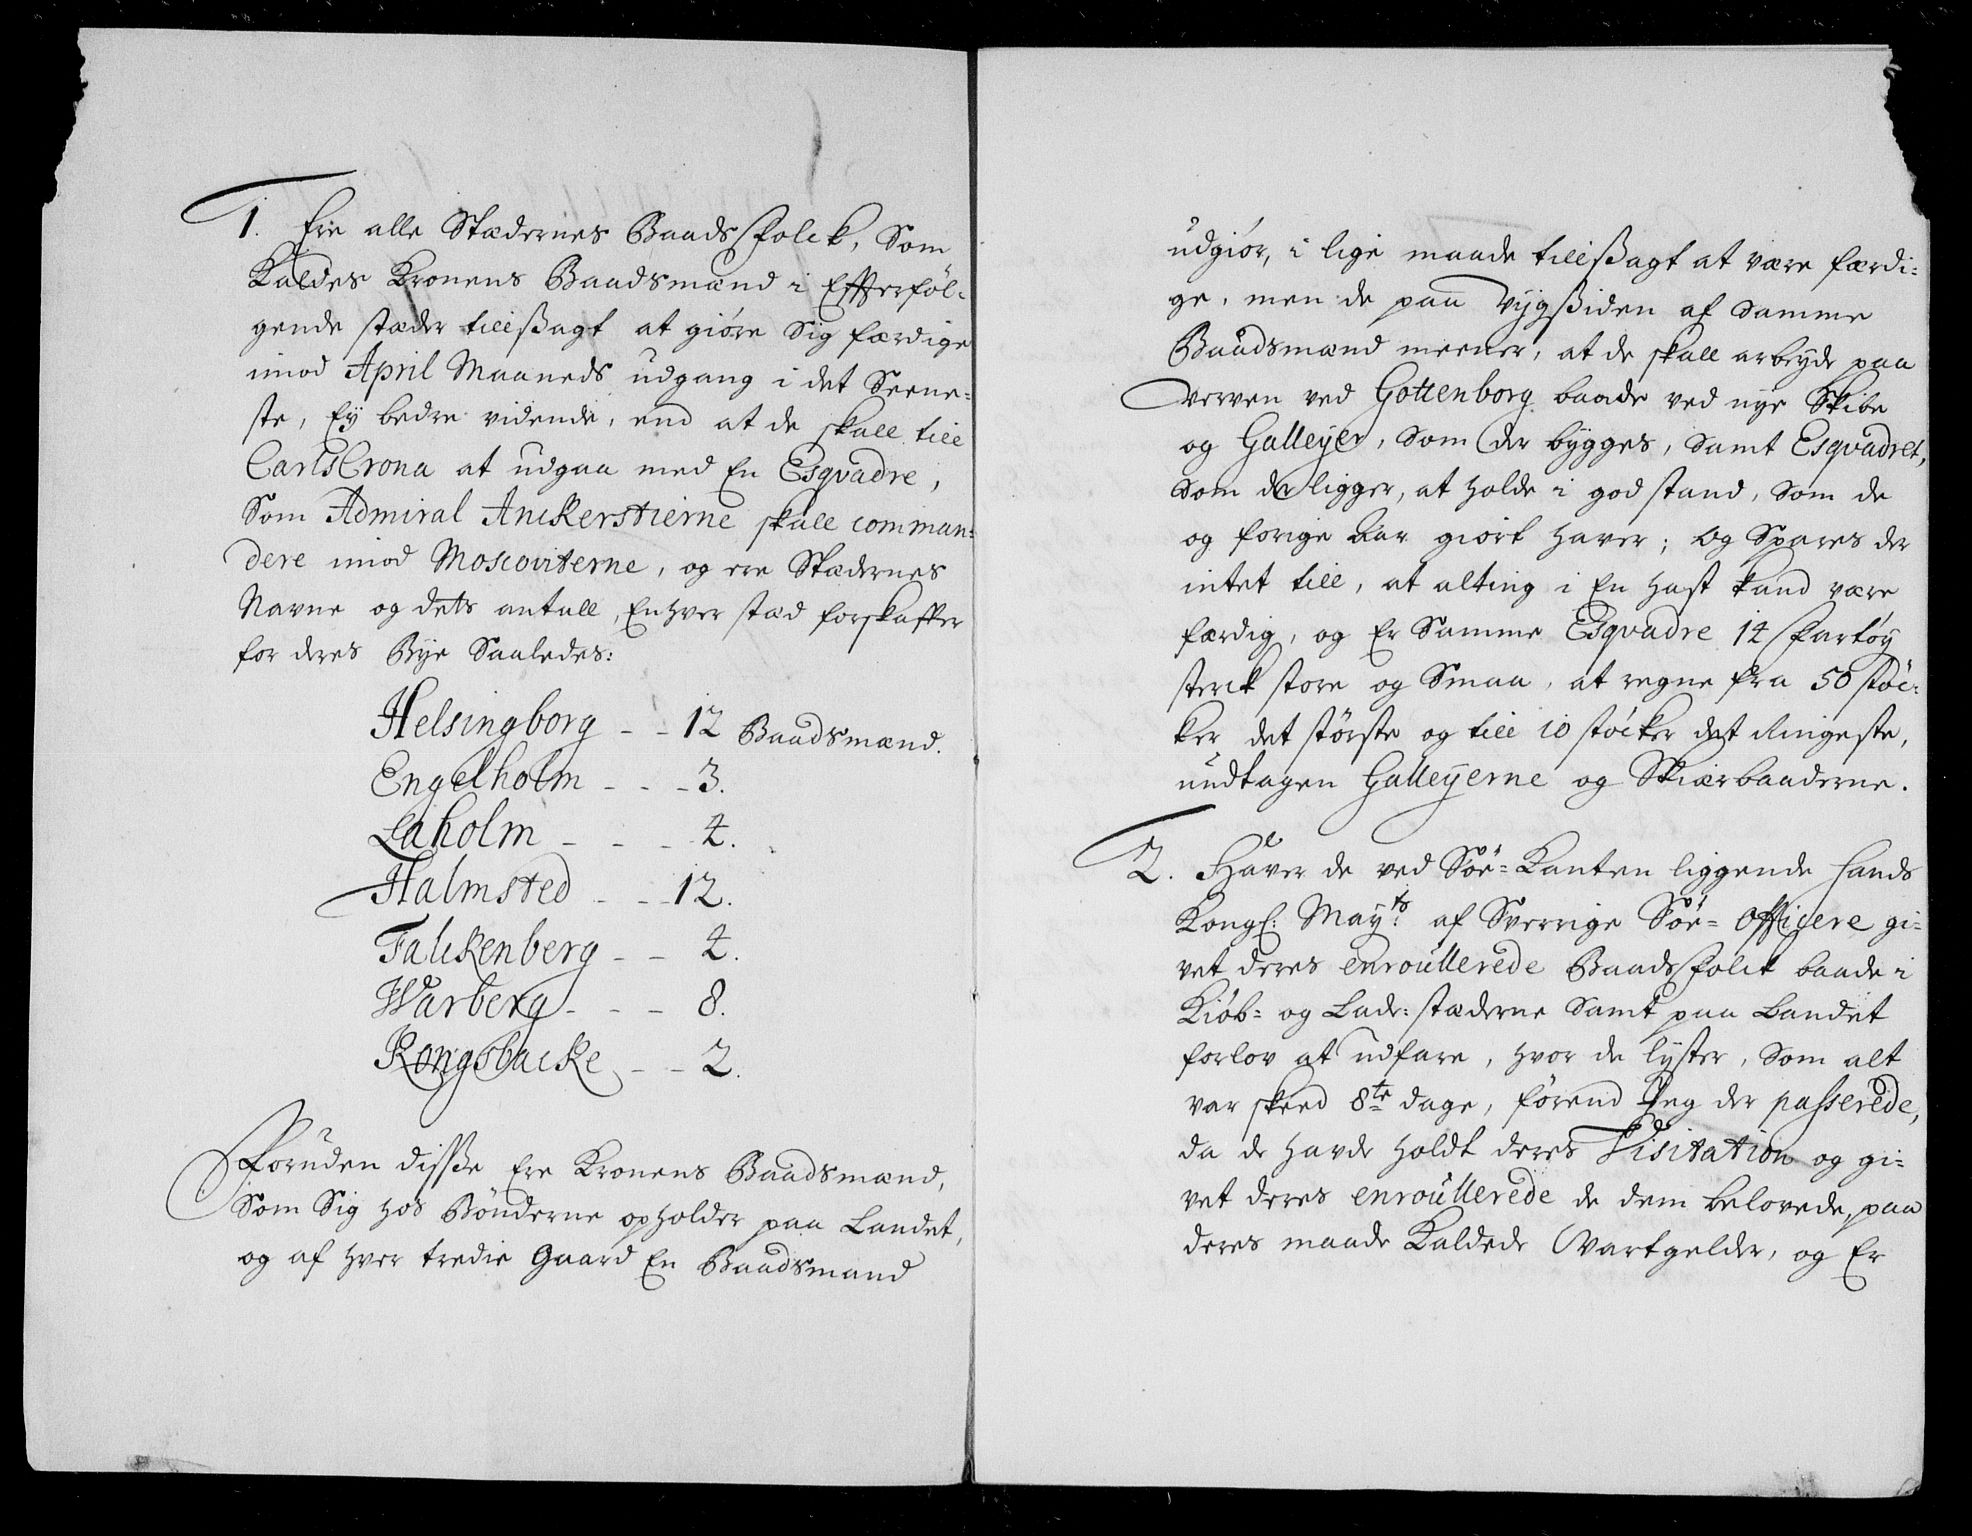 1. Ere alle Stædernes Baads folck, Som
Kaldes Kronens Baadsmænd i Effterföl-
gende stæder tillsagt at giöre Sig færdige
imod April Maaneds udgang i det Seene-
ste, Ey bedre vidende, end at de skall till
CarlsCrona at udgaa med En Esqvadre,
Som Admiral Anckerstierne skall comman-
dere imod Moscoviterne, og ere Stædernes
Navne og dets antall, Enhver stæd forskaffer
for deres Bye Saaledes:
Helsingborg - - 12 Baadsmænd.
Engelholm - - - 3.
Laholm - - - 4.
Halmsted - - - 12.
Falckenberg - - 4.
Warberg - - - 8.
Kongsbacke - - 2.
Foruden disse Ere Kronens Baadsmænd,
Som Sig hos Bönderne opholder paa Landet,
og af hver tredie Gaard En Baadsmand
udgiör, i lige maade tillsagt at være færdi-
ge, men de paa Vygsiden af Samme
Baadsmænd meener, at de skall arbeyde paa
Verven ved Gottenborg baade ved nye Skibe
og Galleyer, Som der bygges, samt Esqvadret,
Som der ligger, at holde i god stand, Som de
og forige Aar giört haver; og Spares der
intet till, at alting i En hast kand være
færdig, og Er Samme Esqvadre 14 fartöy
sterck store og Smaa, at regne fra 50 stöc-
ker det störste og till 10 stöcker det Ringeste,
undtagen Galleyerne og Skiærbaaderne.
2. Haver de ved Söe-Kanten liggende hands
Kongl: Mayts: af Sverrige Söe-Officere gi-
vet deres enroullerede Baads folck baade i
Kiöb- og Lade-stæderne Samt paa Landet
forlov at udfare, hvor de lyster, Som alt
var skeed 8te dage, förend Jeg der passerede,
da de havde holdt deres Visitation og gi-
vet deres enroullerede de dem belovede, paa
deres maade Kaldede Vartgelder, og Er